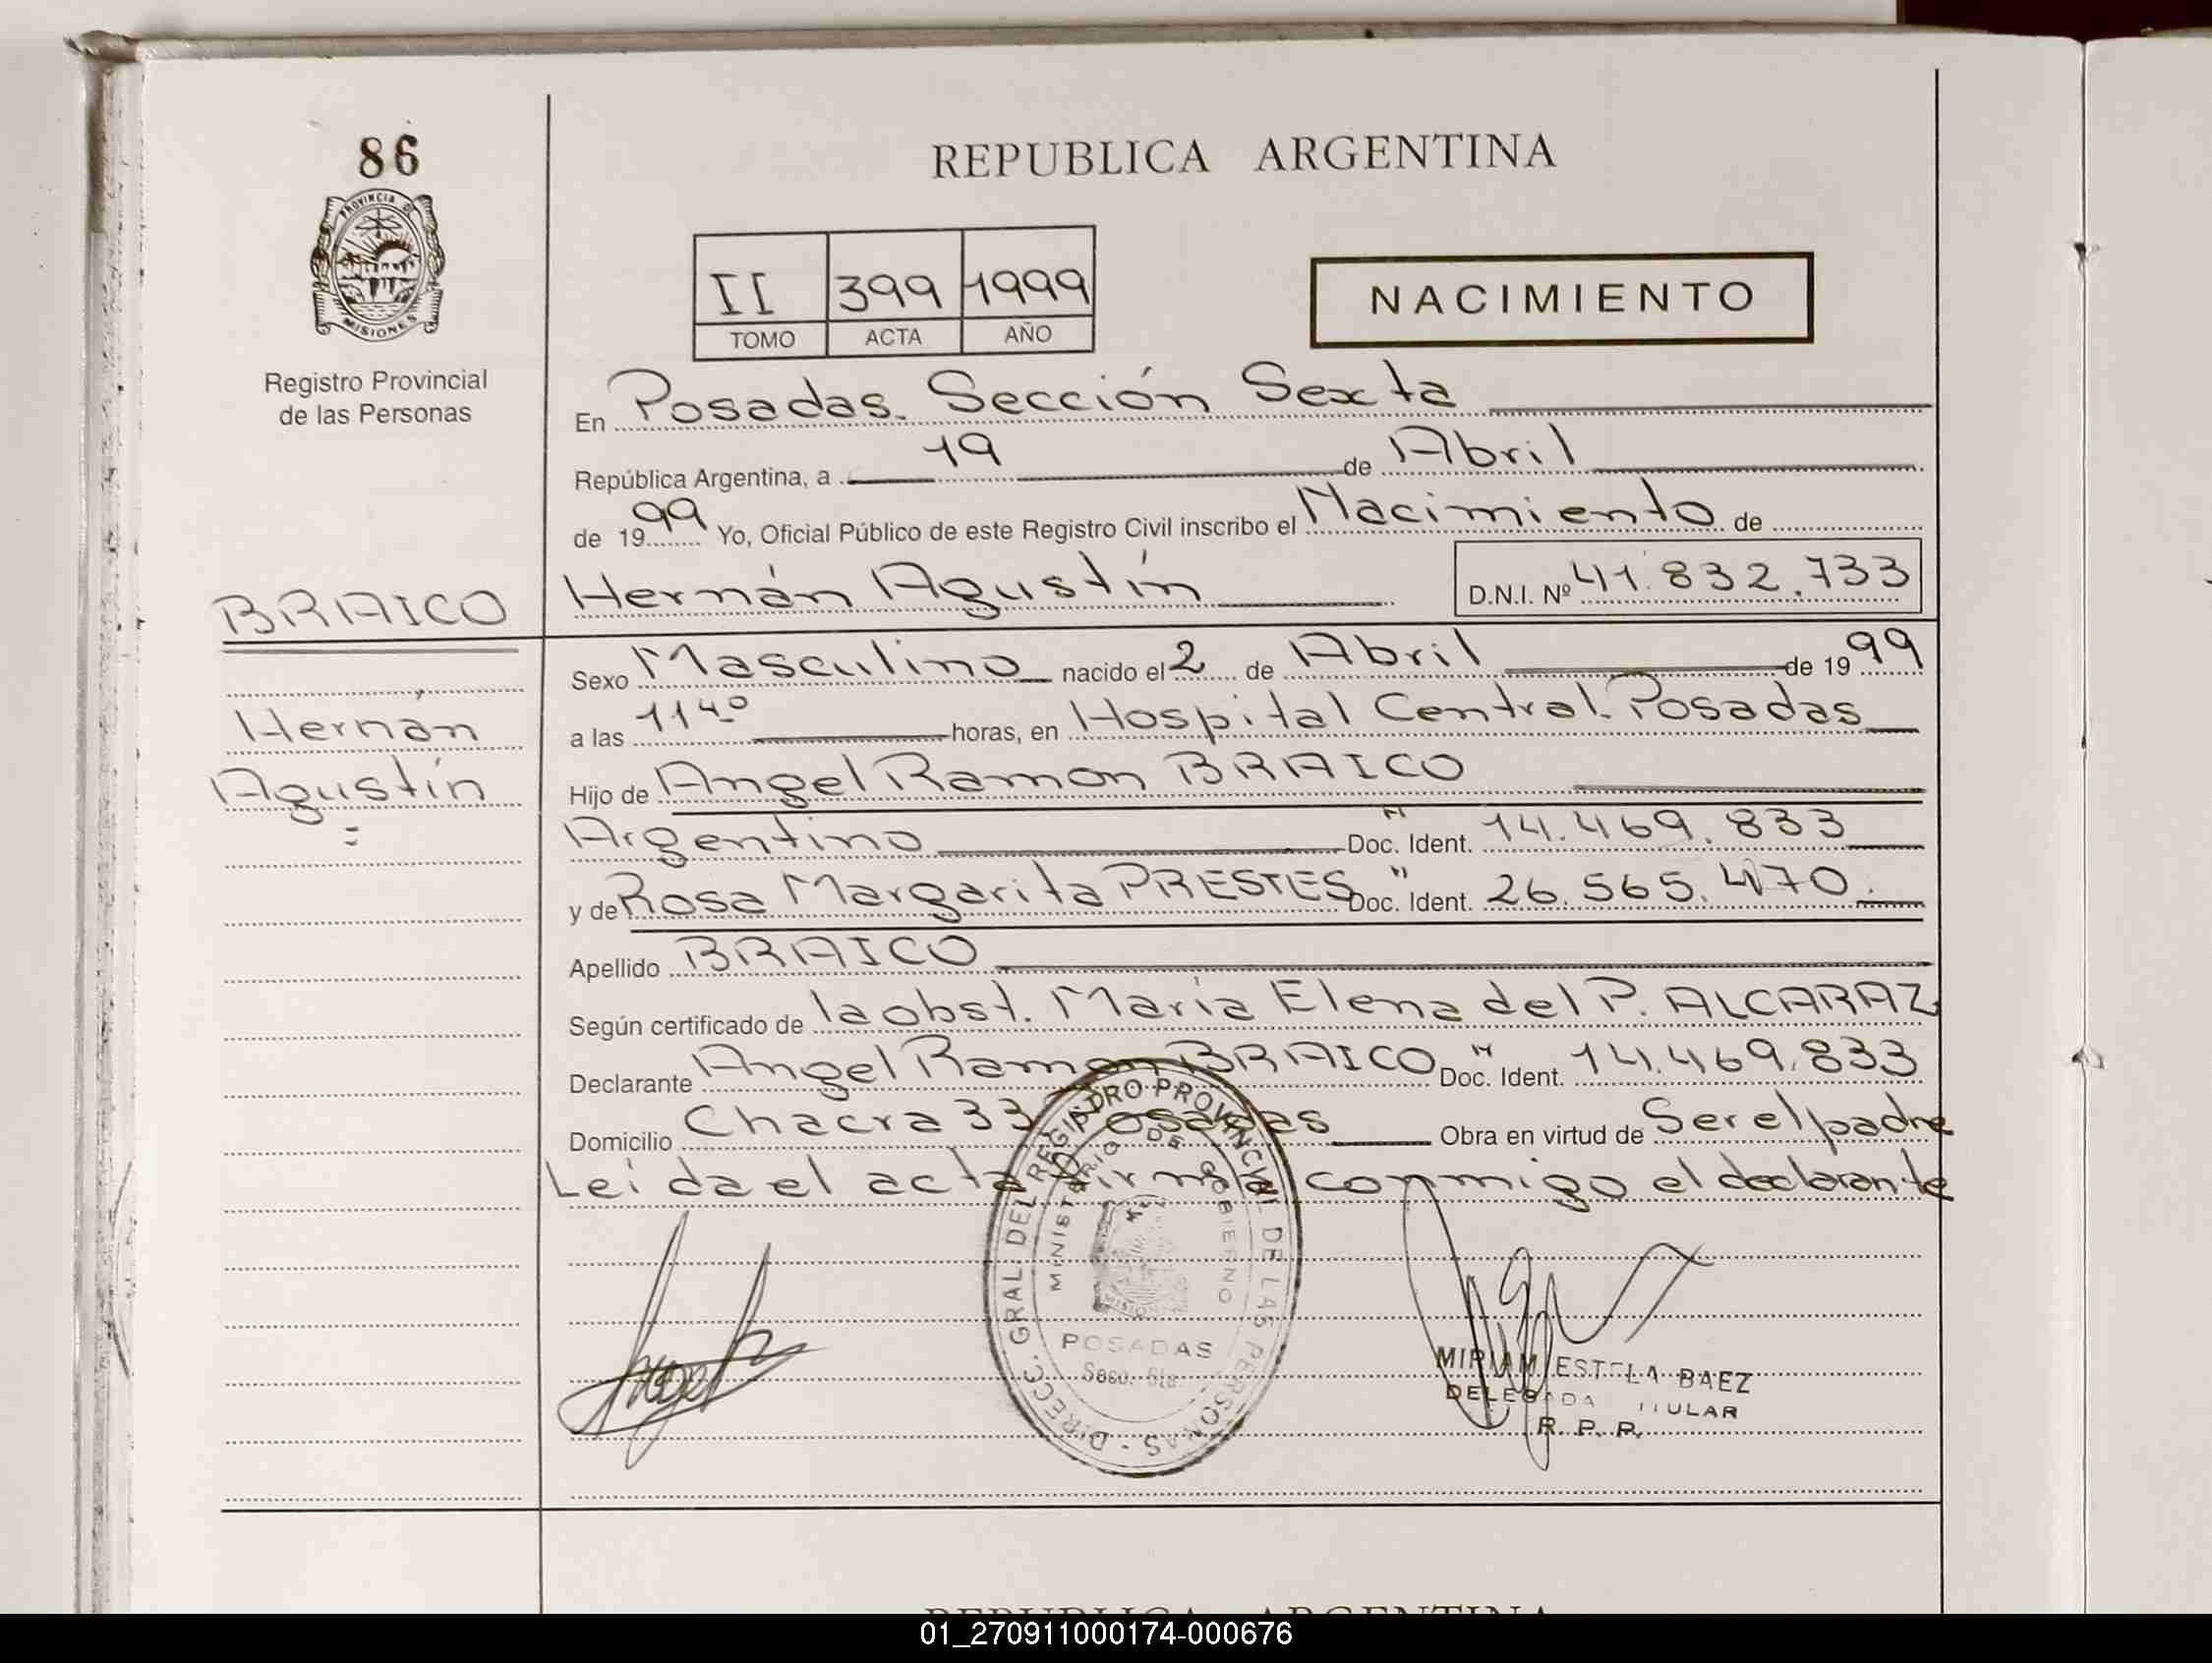 86
PROVINCIA DE
MISIONES
Registro Provincial
de las Personas
BRAICO
Hernán
Agustín
REPUBLICA ARGENTINA
II 399 1999
TOMO ACTA AÑO
NACIMIENTO
En Posadas. Sección Sexta
República Argentina, a 19 de Abril
de 1999 Yo, Oficial Público de este Registro Civil inscribo el Nacimiento de
Hernán Agustín D.N.I. Nº 41.832.733
Sexo Masculino nacido el 2 de Abril de 1999
a las 1140 horas, en Hospital Central. Posadas
Hijo de Angel Ramon BRAICO
Argentino Doc. Ident. 14.469.833
y de Rosa Margarita PRESTES Doc. Ident. 26.565.470.
Apellido BRAICO
Según certificado de la obst. María Elena del P. ALCARAZ
Declarante Angel Ramon BRAICO Doc. Ident. 14.469.833
Domicilio Chacra 33 Posadas Obra en virtud de Ser el padre
Leida el acta firma conmigo el declarante
DIRECC. GRAL. DEL REGISTRO PROVINCIAL DE LAS PERSONAS
MINISTERIO DE GOBIERNO
MISIONES
POSADAS
MIRIAM ESTELA BAEZ
DELEGADA TITULAR
R. P. P.
REPUBLICA ARGENTINA
01_270911000174-000676